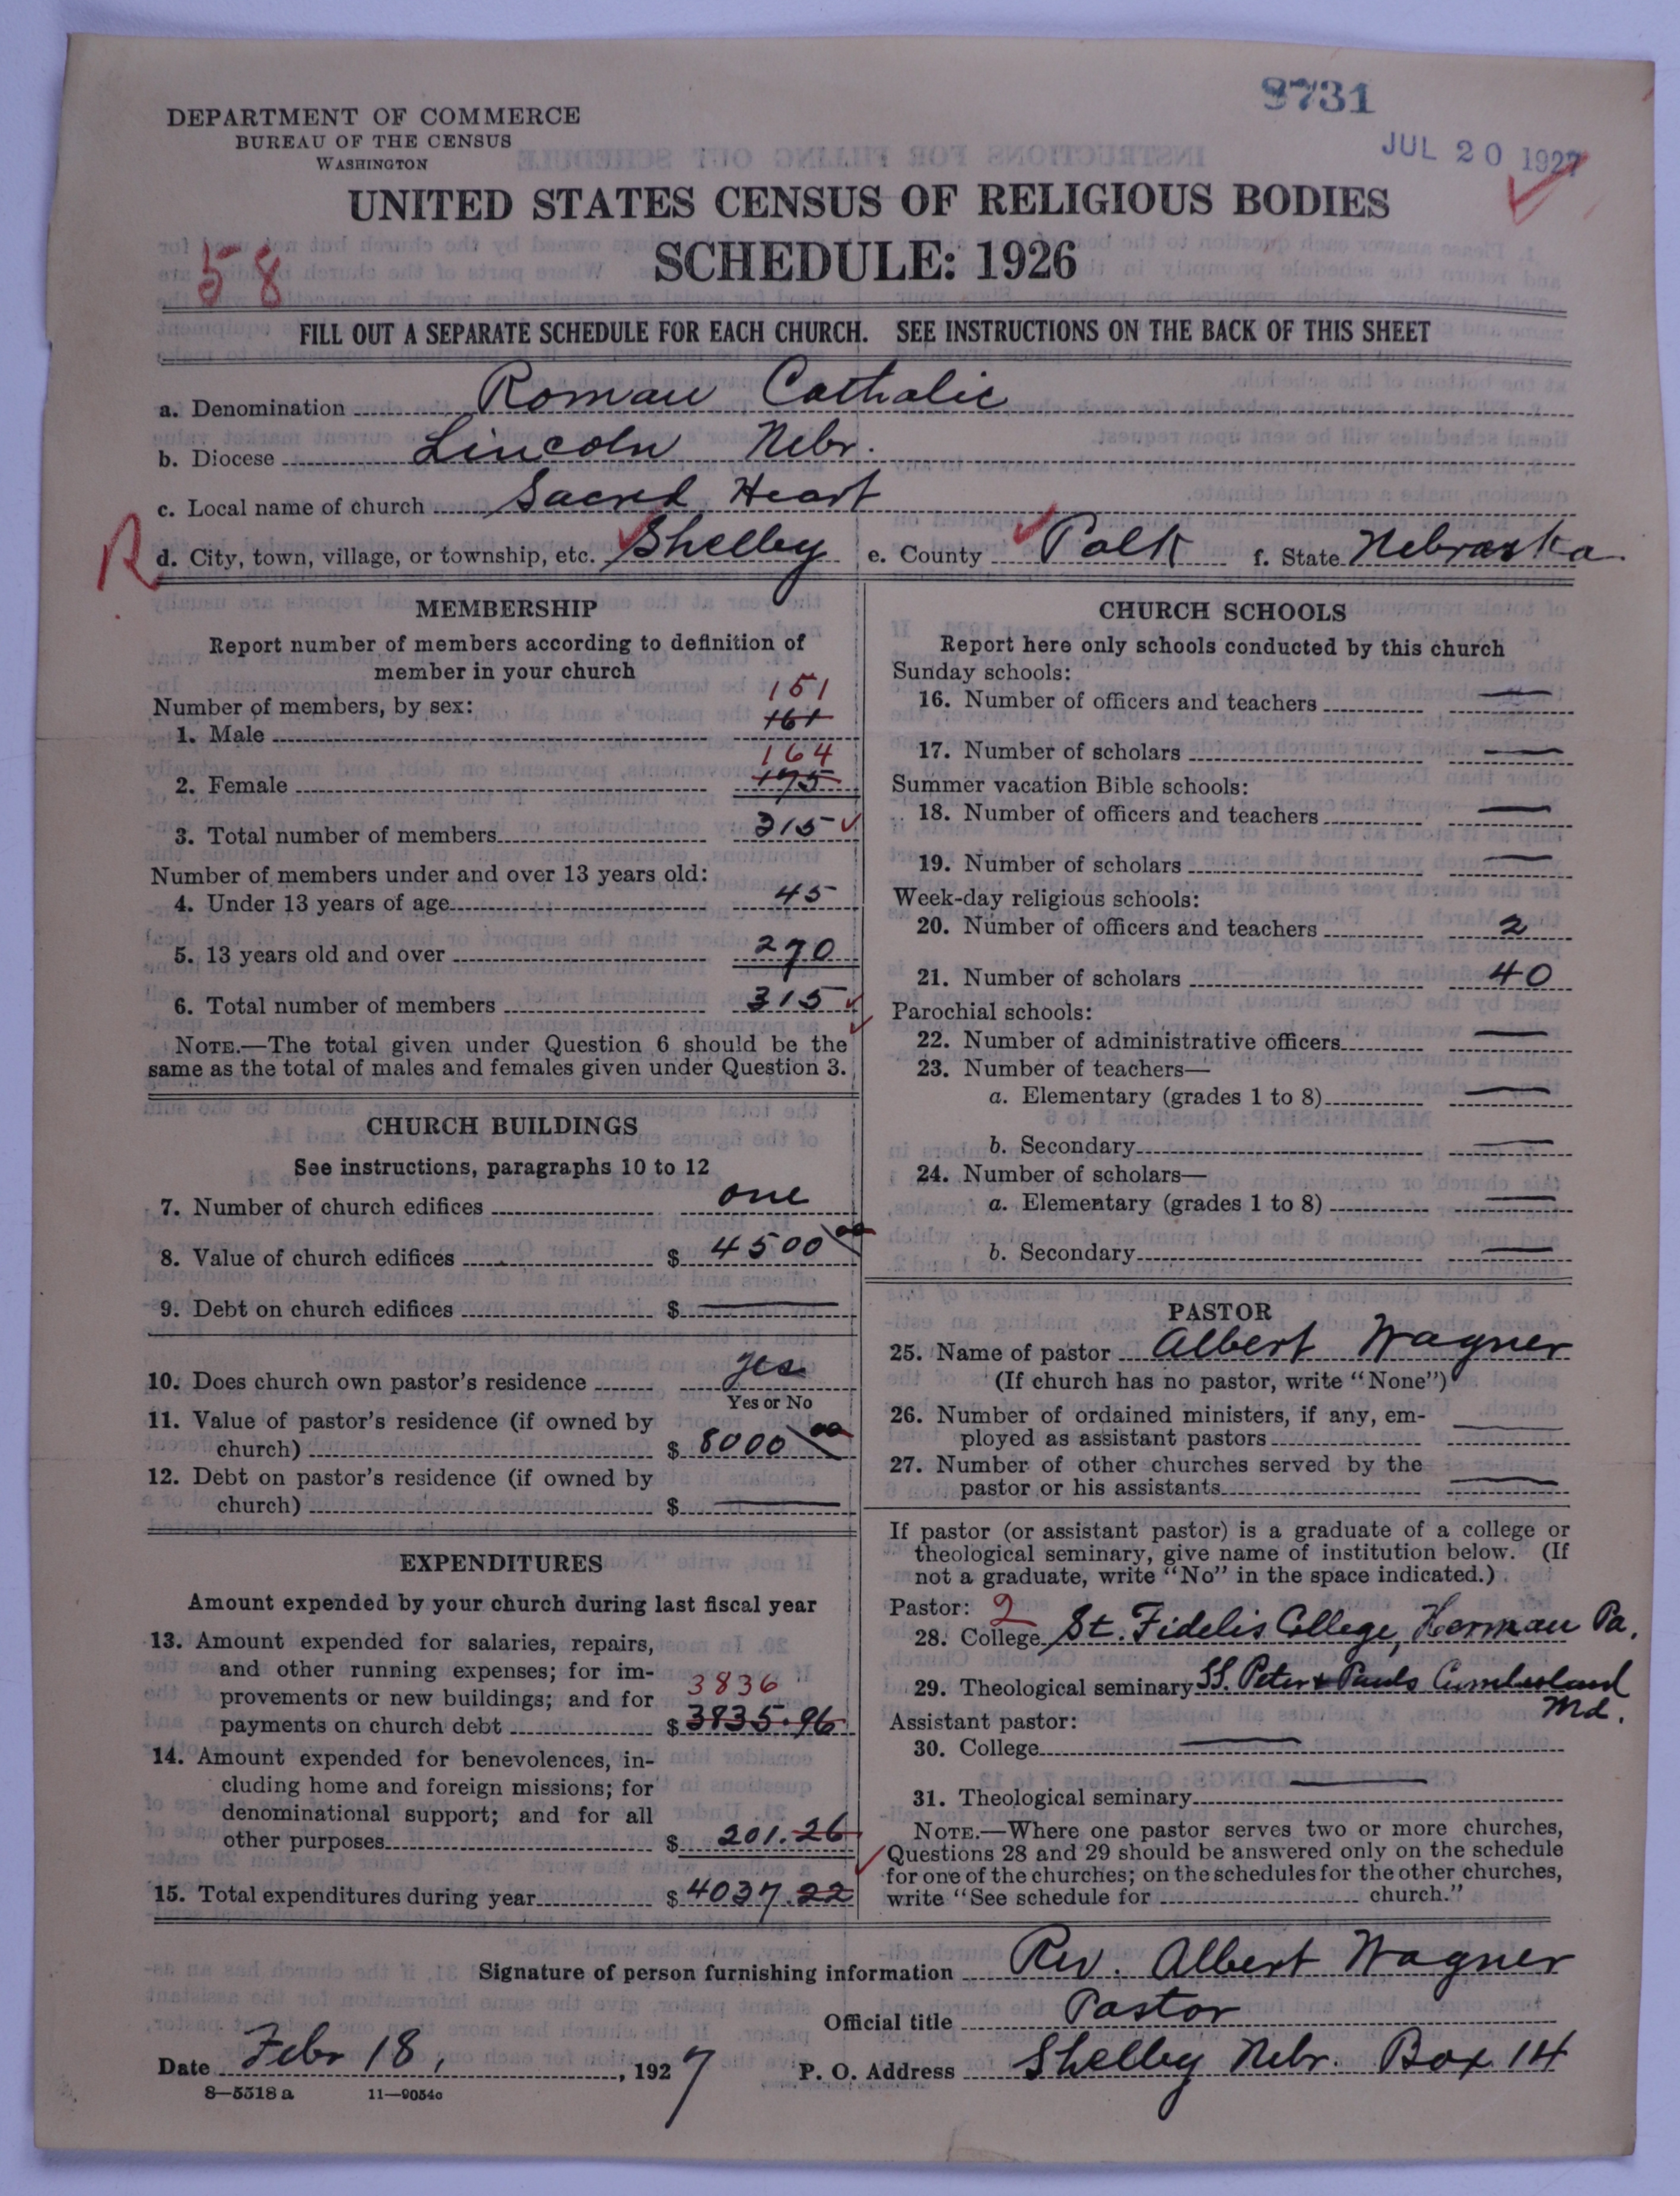 9731
JUL 20 1927
DEPARTMENT OF COMMERCE
BUREAU OF THE CENSUS
WASHINGTON
UNITED STATES CENSUS OF RELIGIOUS BODIES
SCHEDULE: 1926
58
FILL OUT A SEPARATE SCHEDULE FOR EACH CHURCH. SEE INSTRUCTIONS ON THE BACK OF THIS SHEET
a. Denomination Roman Catholic
b. Diocese Lincoln Nebr.
c. Local name of church Sacred Heart
R d. City, town, village, or township, etc. Shelby e. County Polk f. State Nebraska
MEMBERSHIP
Report number of members according to definition of
member in your church
Number of members, by sex:
151
1. Male 161
164
2. Female 175
3. Total number of members 315
Number of members under and over 13 years old:
4. Under 13 years of age 45
5. 13 years old and over 270
6. Total number of members 315
NOTE.—The total given under Question 6 should be the
same as the total of males and females given under Question 3.
CHURCH BUILDINGS
See instructions, paragraphs 10 to 12
7. Number of church edifices one
8. Value of church edifices $ 4500 00
9. Debt on church edifices $ —
10. Does church own pastor's residence yes
Yes or No
11. Value of pastor's residence (if owned by
church) $ 8000 00
12. Debt on pastor's residence (if owned by
church) $ —
EXPENDITURES
Amount expended by your church during last fiscal year
13. Amount expended for salaries, repairs,
and other running expenses; for im-
provements or new buildings; and for 3836
payments on church debt $ 3835.96
14. Amount expended for benevolences, in-
cluding home and foreign missions; for
denominational support; and for all
other purposes $ 201.26
15. Total expenditures during year $ 4037.22
CHURCH SCHOOLS
Report here only schools conducted by this church
Sunday schools:
16. Number of officers and teachers —
17. Number of scholars —
Summer vacation Bible schools:
18. Number of officers and teachers —
19. Number of scholars —
Week-day religious schools:
20. Number of officers and teachers 2
21. Number of scholars 40
Parochial schools:
22. Number of administrative officers —
23. Number of teachers—
a. Elementary (grades 1 to 8) —
b. Secondary —
24. Number of scholars—
a. Elementary (grades 1 to 8) —
b. Secondary —
PASTOR
25. Name of pastor Albert Wagner
(If church has no pastor, write "None")
26. Number of ordained ministers, if any, em-
ployed as assistant pastors —
27. Number of other churches served by the
pastor or his assistants —
If pastor (or assistant pastor) is a graduate of a college or
theological seminary, give name of institution below. (If
not a graduate, write "No" in the space indicated.)
Pastor: 2
28. College St. Fidelis College, Herman Pa.
29. Theological seminary SS. Peter & Pauls Cumberland
Md.
Assistant pastor:
30. College —
31. Theological seminary —
NOTE.—Where one pastor serves two or more churches,
Questions 28 and 29 should be answered only on the schedule
for one of the churches; on the schedules for the other churches,
write "See schedule for church."
Signature of person furnishing information Rev. Albert Wagner
Official title Pastor
Date Febr 18, 1927 P. O. Address Shelby Nebr. Box 14
8—5518 a 11—9054c